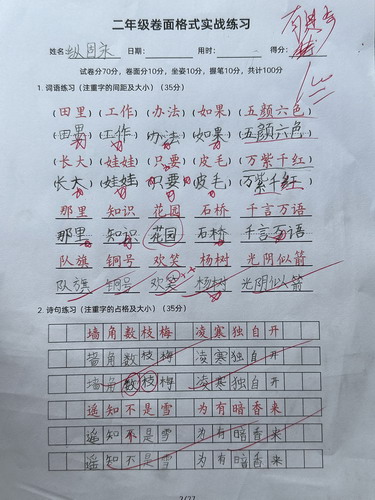 二年级卷面格式实战练习
姓名: 纵周来 日期: 用时: 得分:
试卷分70分，卷面分10分，坐姿10分，握笔10分，共计100分
1. 词语练习（注重字的间距及大小）(35分)
(田里)(工作)(办法)(如果)(五颜六色)
(田里)(工作)(办法)(如果)(五颜六色)
(长大)(娃娃)(只要)(皮毛)(万紫千红)
(长大)(娃娃)(只要)(皮毛)(万紫千红)
那里 知识 花园 石桥 千言万语
那里 知识 花园 石桥 千言万语
队旗 铜号 欢笑 杨树 光阴似箭
队旗 铜号 欢笑 杨树 光阴似箭
2. 诗句练习（注重字的占格及大小）(35分)
墙角数枝梅 凌寒独自开
墙角数枝梅 凌寒独自开
墙角数枝梅 凌寒独自开
遥知不是雪 为有暗香来
遥知不是雪 为有暗香来
遥知不是雪 为有暗香来